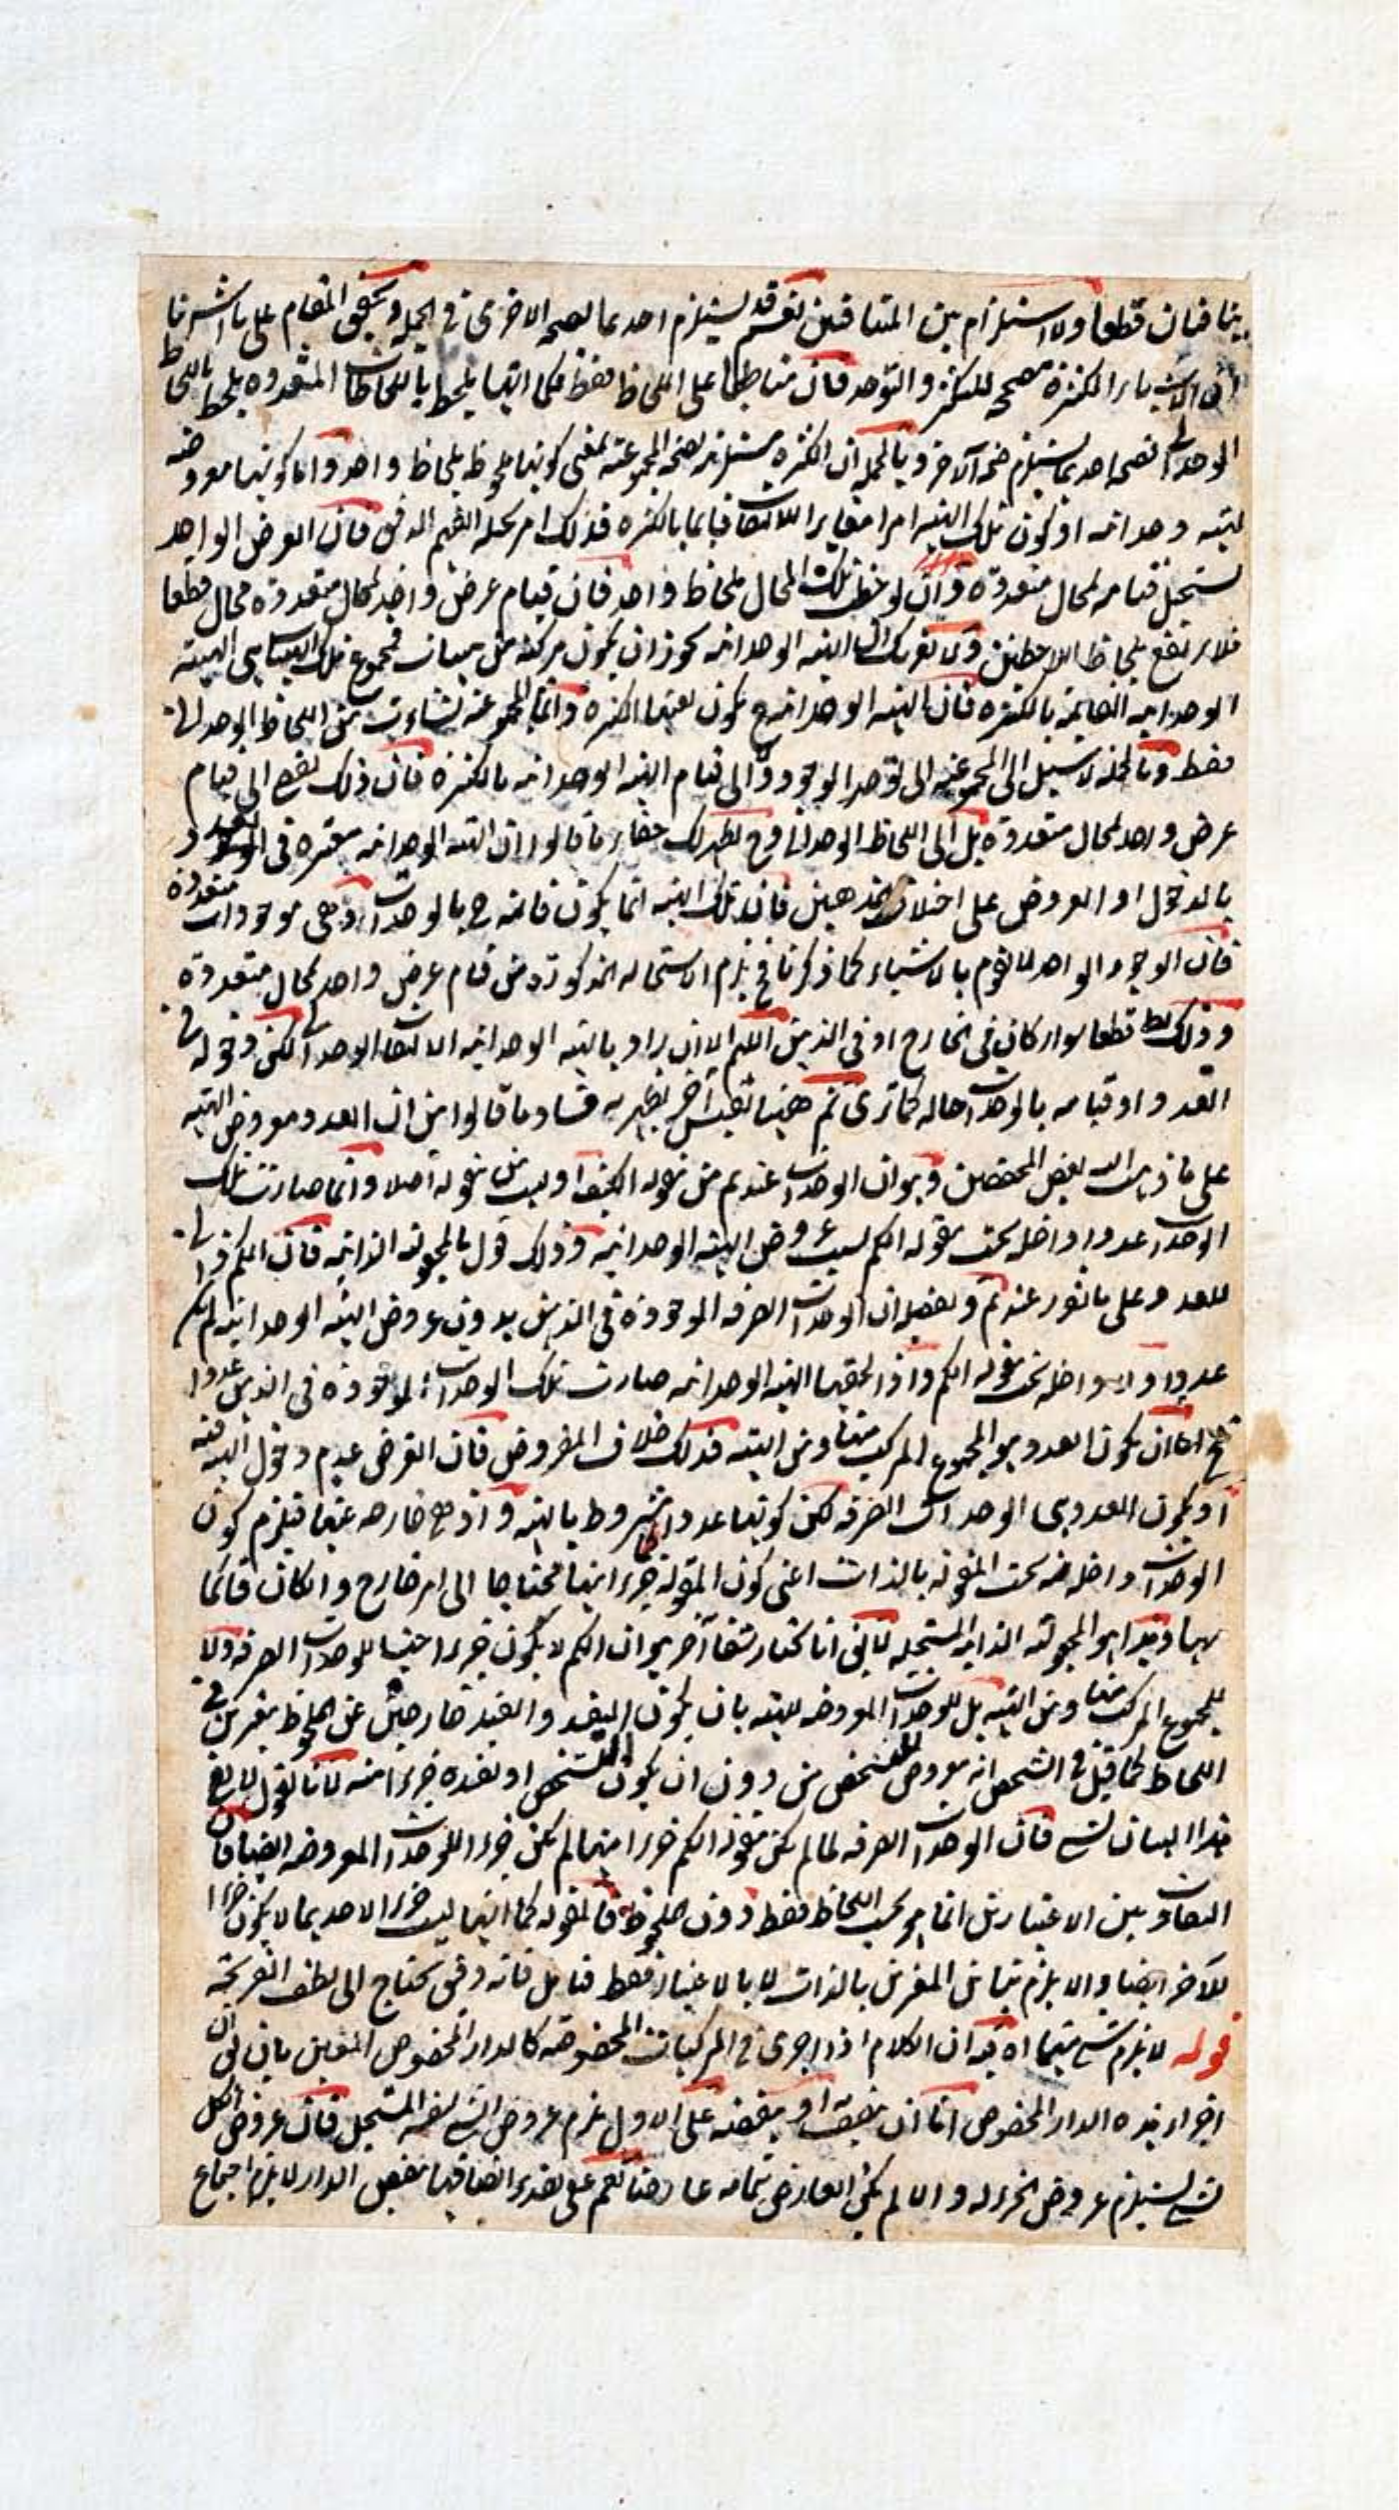 ينافيان قطعا ولا استلزام بين المتنافيين نعم قد يستلزم احدهما لصحة الاخرى في الجملة وتحقيق المقام على ما اشرنا
الكثرة مصححة للتكثر والتوحد فان مناطهما على اللحاظ فقط فكما انها يلحظ باللحاظات المتعددة يلحظ باللحاظ
الوحداني فصحة احدهما يستلزم صحة الآخر وبالجملة ان الكثرة مستلزمة لصحة المجموعية بمعنى كونها ملحوظة بلحاظ واحد واما كونها معروضة
لهيئة وحدانية او كون تلك الهيئة امرا مغايرا للالتفات قائما بالكثرة فذلك امر الفهم فان العرض الواحد
يستحيل قيامه لمحال متعددة وان لوحظت تلك المحال بلحاظ واحد فان قيام عرض واحد لمحال متعددة محال قطعا
فلا يرتفع بلحاظ اللاحظين ولا الهيئة الوحدانية يجوز ان يكون مركبة من هيئات فمجموع تلك الهيئات هي الهيئة
الوحدانية القائمة بالكثرة فان الهيئة الوحدانية ح يكون بعينها الكثرة وانما المجموعية نشاءت من اللحاظ الوحداني
فقط وبالجملة لا سبيل الى المجموعية الى توحد الوجود والى قيام الهيئة الوحدانية بالكثرة فان ذلك يفضي الى قيام
عرض واحد لمحال متعددة بل الى اللحاظ الوحداني وح يظهر لك ما قالوا ان الهيئة الوحدانية معتبرة في العدد
بالدخول او العروض على اختلاف المذهبين فان تلك الهيئة انما يكون قائمة ح بالوحدات وهي موجودات متعددة
فان الوجود الواحد لا يقوم بالاشياء كما ذكرنا فح يلزم الاستحالة المذكورة من قيام عرض واحد لمحال متعددة
وذلك بط قطعا سواء كان في الخارج او في الذهن اللهم الا ان يراد بالهيئة الوحدانية الالتفات الوحداني لكن دخوله في
العدد او قيامه بالوحدات احالة كما ترى ثم ههنا آخر يظهر به فساد ما قالوا من ان العدد معروض الهيئة
على ما ذهب اليه بعض المحققين وهو ان الوحدات عندهم من مقولة الكيف او ليست من مقولة اصلا وانما صارت تلك
الوحدات عددا وداخلة تحت مقولة الكم بسبب عروض الهيئة الوحدانية وذلك قول بالمجعولية الذاتية فان الكم ذاتي
للعدد على ما تقرر عندهم وتفصيله ان الوحدات الصرفة الموجودة في الذهن بدون عروض الهيئة الوحدانية لم يكن
عددا ولا داخلة تحت مقولة الكم واذا لحقها الهيئة الوحدانية صارت تلك الوحدات الموجودة في الذهن عددا
فح اما ان يكون العدد هو المجموع المركب منها ومن الهيئة فذلك خلاف المفروض فان الفرض عدم دخول الهيئة فيه
او يكون العدد هي الوحدات الصرفة لكن كونها عددا مشروط بالهيئة واذ هي خارجة عنها فيلزم كون
الوحدات داخلة تحت المقولة بالذات اعني كون المقولة جزءا منها محتاجا الى امر خارج وان كان قائما
بها وهذا هو المجعولية الذاتية المستحيلة لا يقال انا نختار شقا آخر هو ان الكم لا يكون جزءا للوحدات الصرفة ولا
للمجموع المركب منها ومن الهيئة بل للوحدات المعروضة للهيئة بان يكون التقييد والقيد خارجين عن الملحوظ معتبرين في
اللحاظ كما قيل في الشخص انه معروض للتشخص من دون ان يكون التشخص او تقيده جزءا منه لانا نقول لا ينفع
هذا البيان لشئ فان الوحدات الصرفة لما لم يكن مقولة الكم جزءا منها لم يكن جزءا للوحدات المعروضة ايضا فان
التفاوت بين الاعتبارين انما هو بحسب اللحاظ فقط دون الملحوظ فالمقولة كما انها ليست جزءا لاحدهما لا يكون جزءا
للآخر ايضا والا يلزم تباين المفرين بالذات لا بالاعتبار فقط فتامل فانه دقيق يحتاج الى لطف القريحة
قوله لا يلزم شئ منهما اه فيه ان الكلام اذا اجرى في المركبات المخصوصة كالدار المخصوص المعين بان يق ان
اجزاء هذه الدار المخصوص اما ان متصفة او بنقيضه على الاول يلزم عروض الشئ لنفسه المستحيل فان عروض الكل
لشئ يستلزم عروض الجزء له والا لم يكن العارض بتمامه عارضا نعم على تقدير اتصافها بنقيض الدار لا يلزم اجتماع